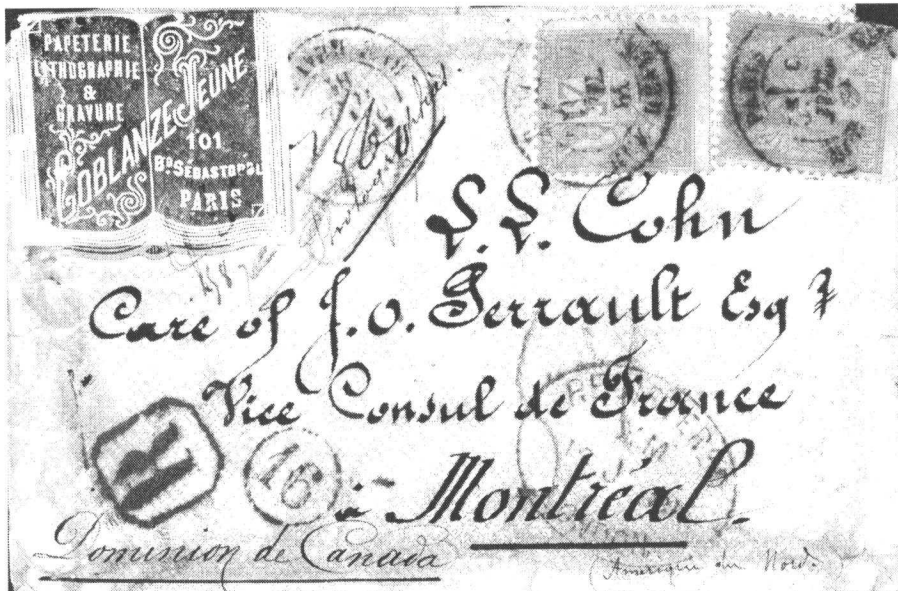 PAPETERIE
LITHOGRAPHIE
&
GRAVURE
COBLANZE JEUNE
101
Bd SÉBASTOPOL
PARIS
L. L. Cohn
Care of J. O. Perrault Esqr
Vice Consul de France
à Montréal.
R
16
Dominion de Canada
(Amérique du Nord.)
PARIS